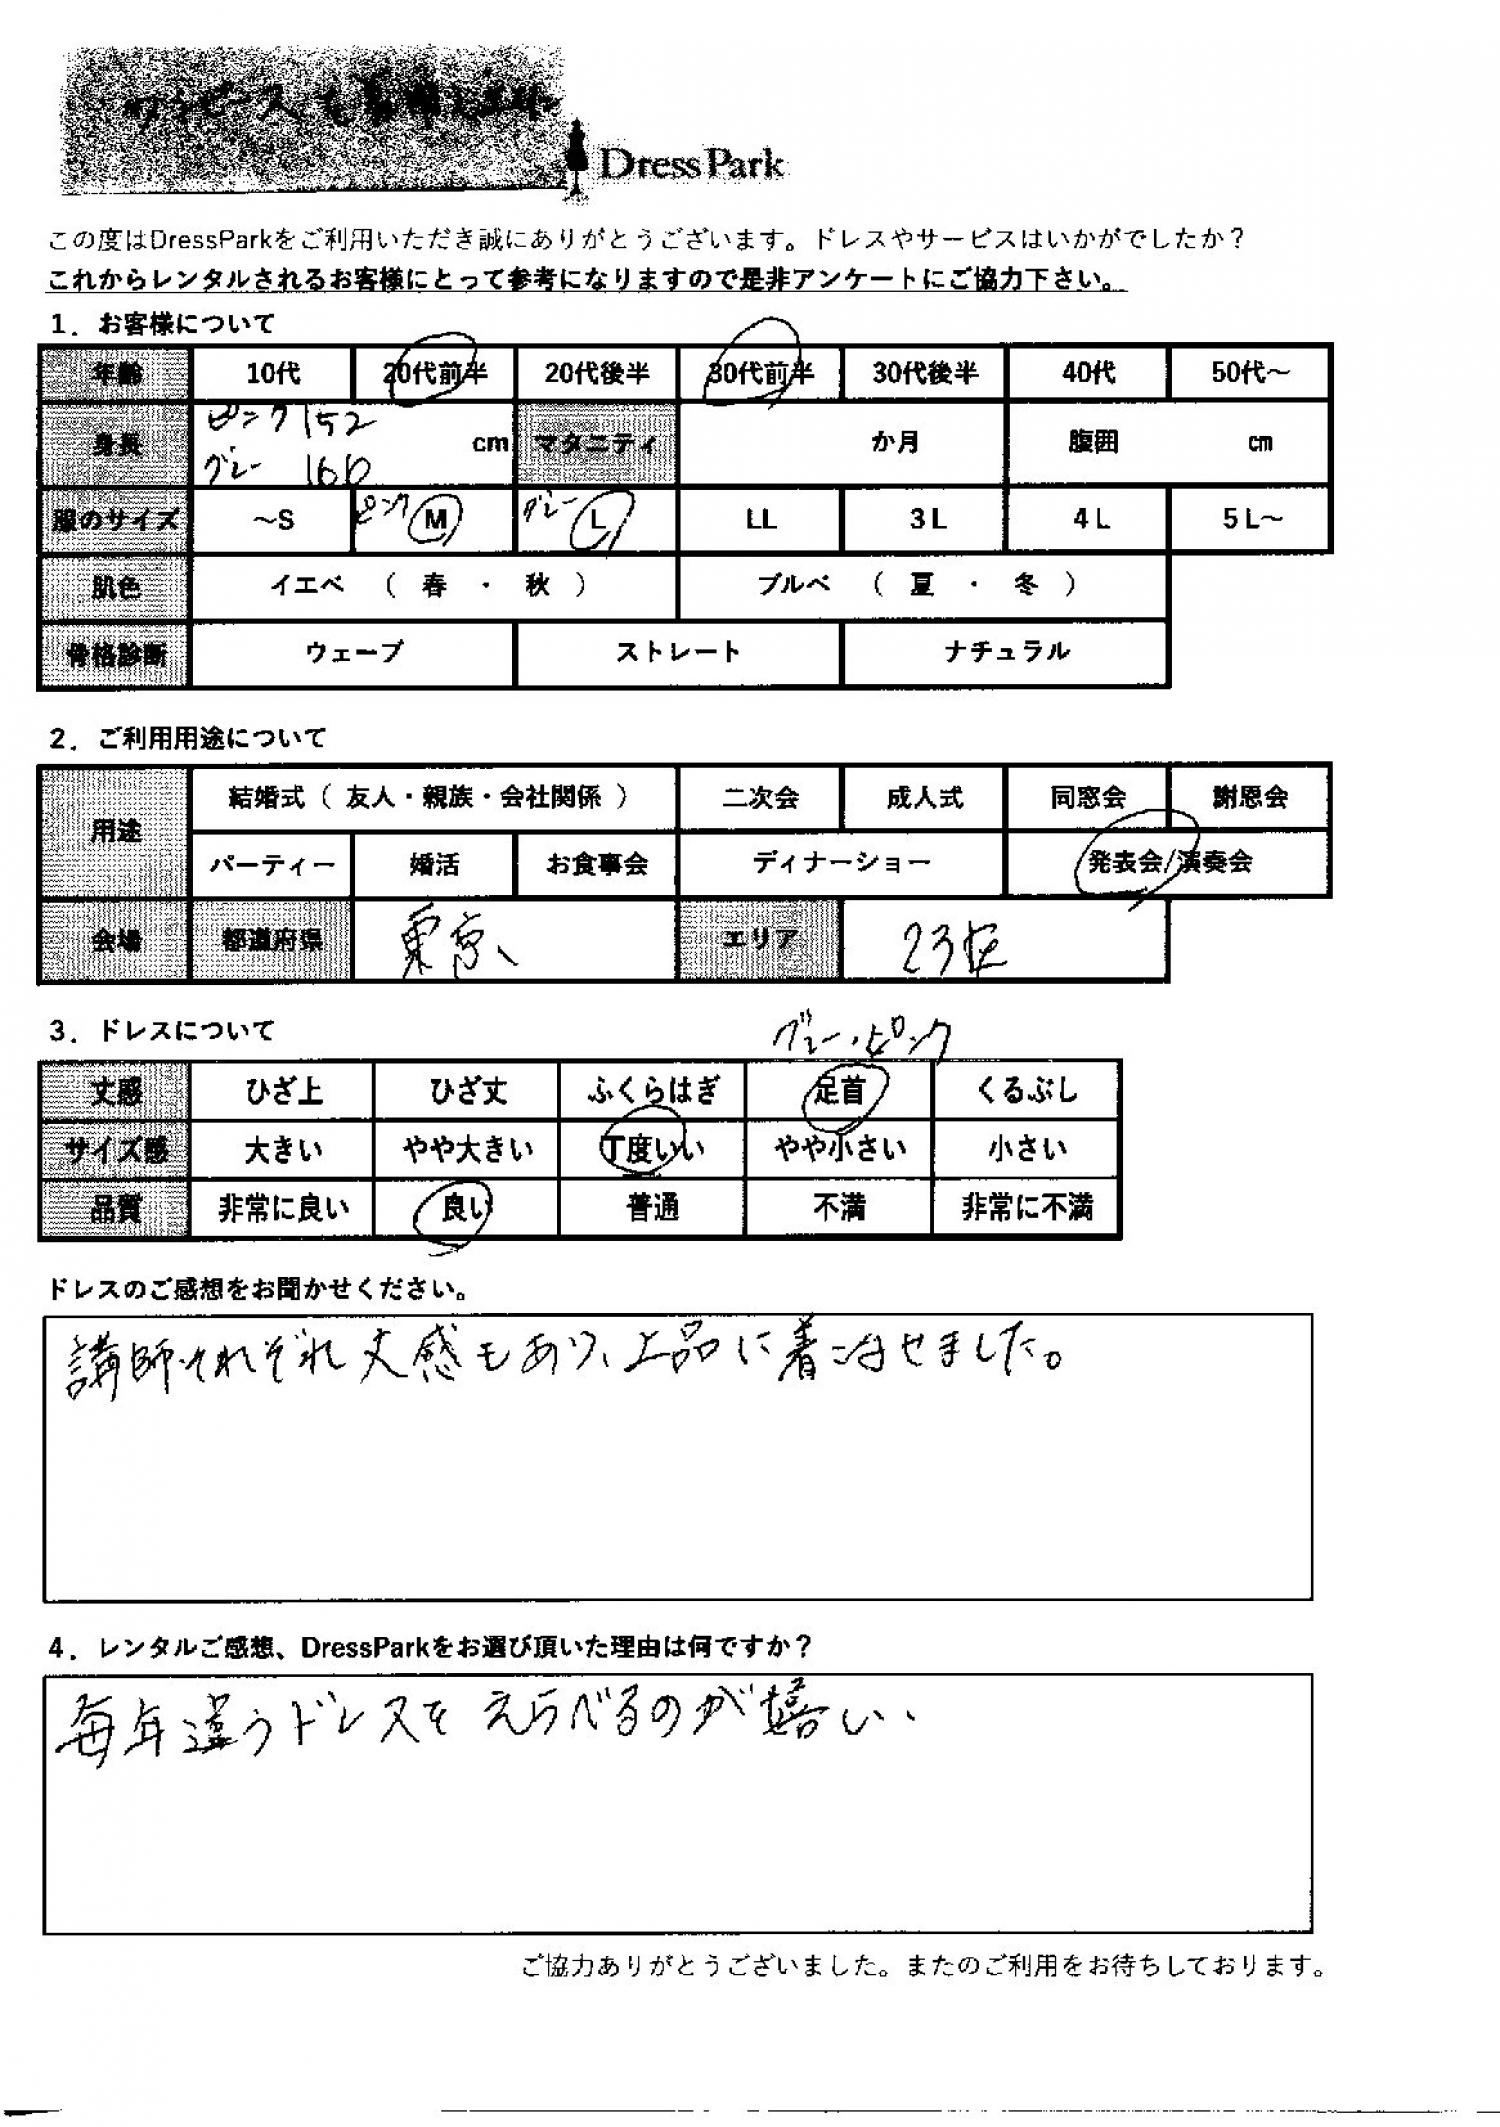 ワンピースも
DressPark
この度はDressParkをご利用いただき誠にありがとうございます。ドレスやサービスはいかがでしたか？
これからレンタルされるお客様にとって参考になりますので是非アンケートにご協力下さい。
1．お客様について
年齢 10代 20代前半 20代後半 30代前半 30代後半 40代 50代～
身長 ピンク 152 グレー 166 cm マタニティ か月 腹囲 cm
服のサイズ ～S ピンク M グレー L LL 3L 4L 5L～
肌色 イエベ （ 春 ・ 秋 ） ブルベ （ 夏 ・ 冬 ）
骨格診断 ウェーブ ストレート ナチュラル
2．ご利用用途について
用途 結婚式（ 友人・親族・会社関係 ） 二次会 成人式 同窓会 謝恩会
パーティー 婚活 お食事会 ディナーショー 発表会/演奏会
会場 都道府県 東京、 エリア 23区
3．ドレスについて
グレー・ピンク
丈感 ひざ上 ひざ丈 ふくらはぎ 足首 くるぶし
サイズ感 大きい やや大きい 丁度いい やや小さい 小さい
品質 非常に良い 良い 普通 不満 非常に不満
ドレスのご感想をお聞かせください。
講師それぞれ丈感もあり、上品に着こなせました。
4．レンタルご感想、DressParkをお選び頂いた理由は何ですか？
毎年違うドレスをえらべるのが嬉しい、
ご協力ありがとうございました。またのご利用をお待ちしております。